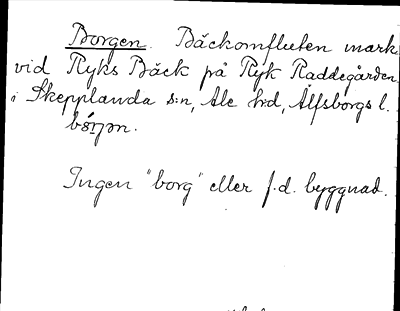 Borgen. Bäckomfluten mark
vid Ryks Bäck på Ryk Raddegården
i Skepplanda s:n, Ale hd, Älfsborgs l.
Ingen "borg" eller f.d. byggnad.